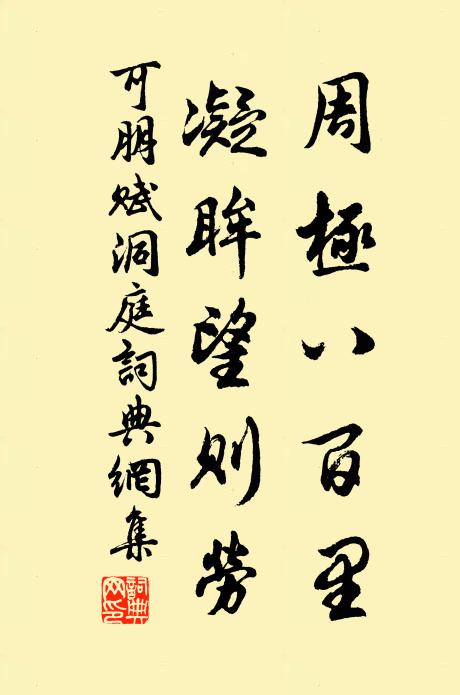 周極八百里
凝眸望則勞
可朋賦洞庭詞典網集
詞典網印